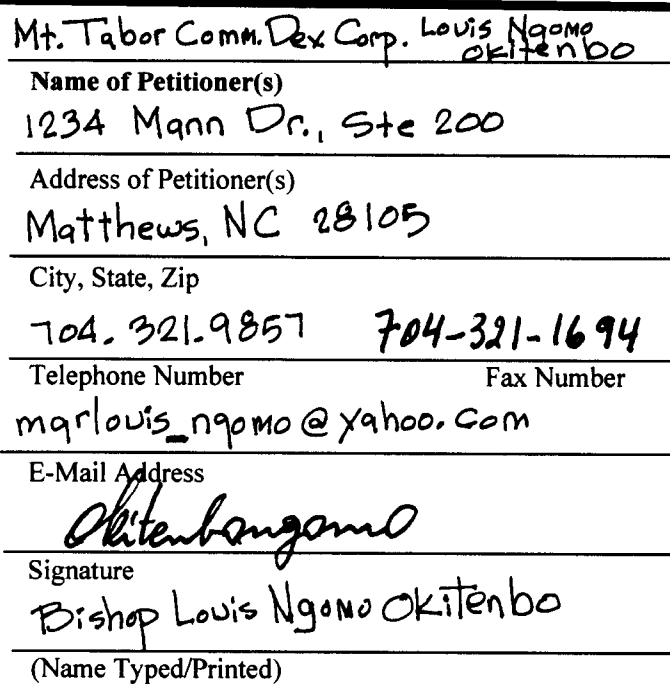 Mt. Tabor Comm. Dex Corp. Louis Ngomo
Okitenbo
Name of Petitioner(s)
1234 Mann Dr., Ste 200
Address of Petitioner(s)
Matthews, NC 28105
City, State, Zip
704.321.9857 704-321-1694
Telephone Number Fax Number
marlouis_ngomo@yahoo.com
E-Mail Address
Okitenbongomo
Signature
Bishop Louis Ngomo Okitenbo
(Name Typed/Printed)